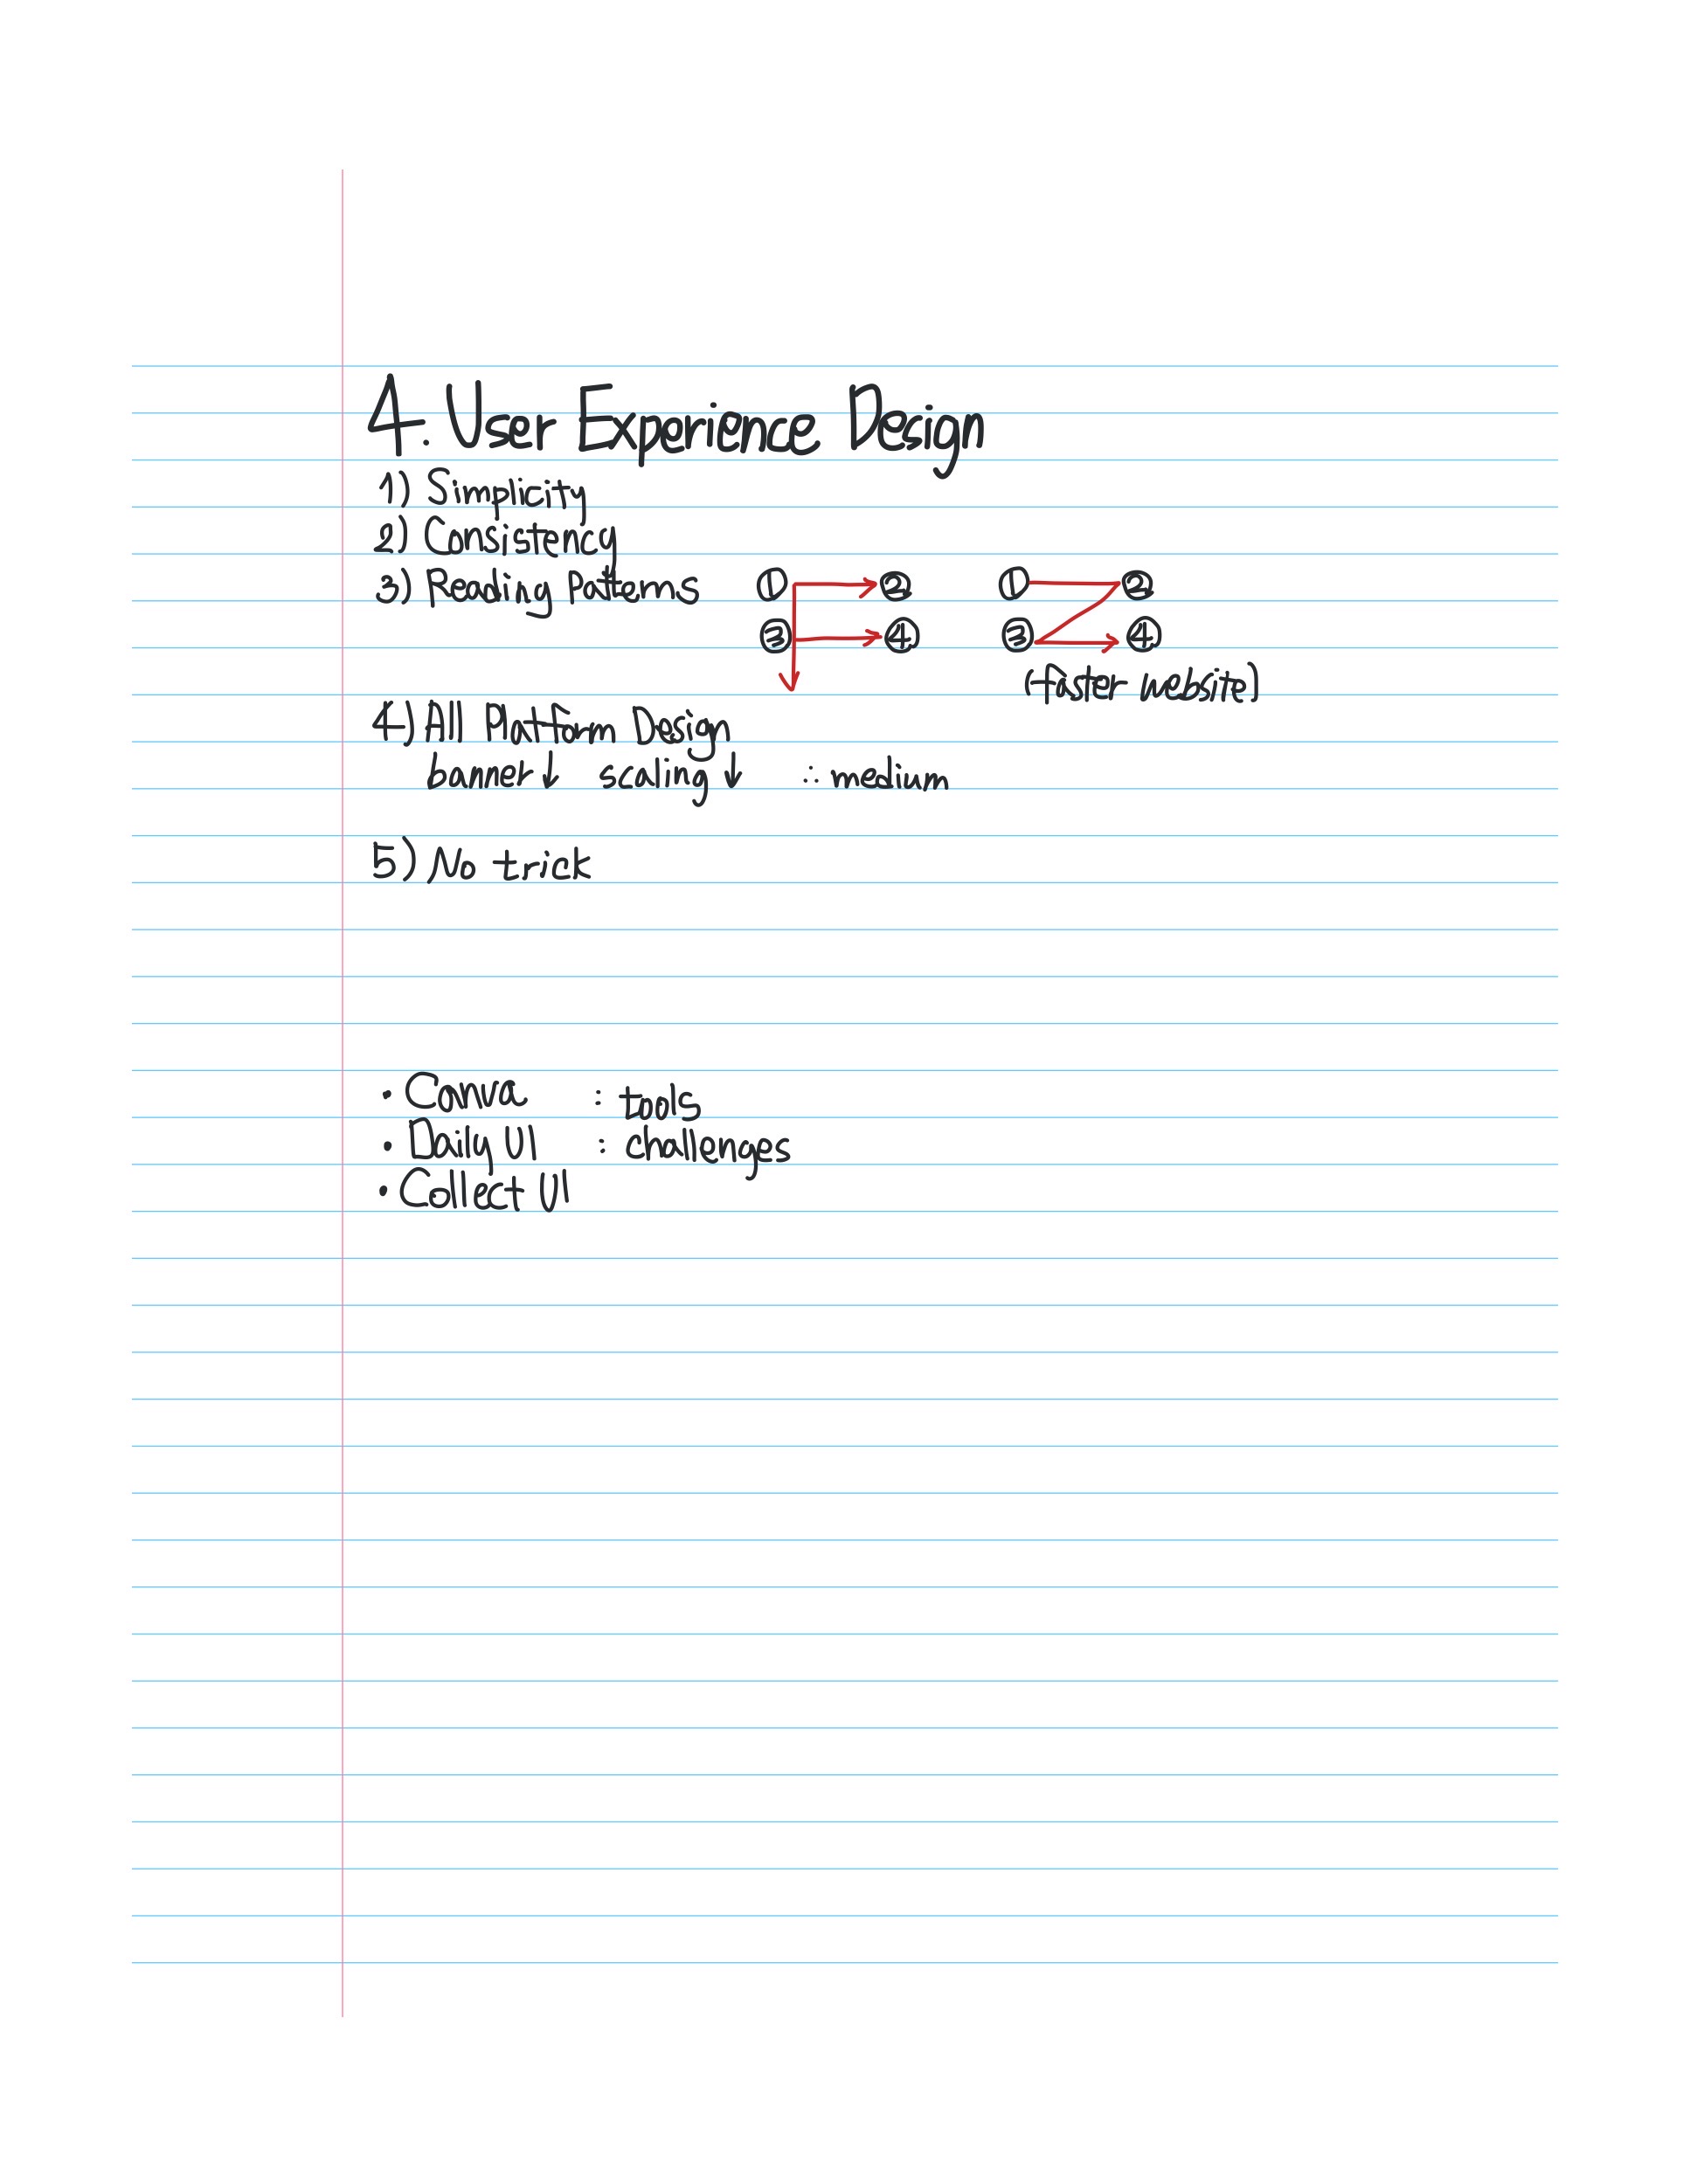 4. User Experience Design
1) Simplicity
2) Consistency
3) Reading Patterns ① ② ① ②
③ ④ ③ ④
(faster website)
4) All Platform Design
banner↓ scaling↓ ∴ medium
5) No trick
• Canva : tools
• Daily UI : challenges
• Collect UI